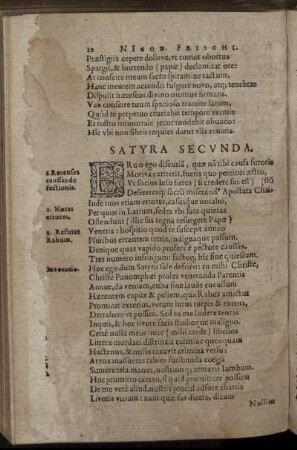 12 NICOD. FRISCHL.
Præstigiis cepere dolisve, vt rumor obortus
Spargit, & horrendo (papæ) declamitat ore:
At conscire meum sacro spiramine tactum,
Hanc mentem accendit fulgore novo, atque tenebras
Dispulit hæreseos divino numine firmans.
Væ conscire tuum spacioso tramite latum,
Quod te perpetuo cruciabit tempore ventis
Et rostro immortale jecur tondebit obuncō:
Hîc vbi non fibris requies datur vlla renatis.
SATYRA SECVNDA.
ERuo ego discutiā, quæ nā tibi causa furoris
Motiva extiterit, fueris quo percitus œstro,
Vt socios leto fieres (si credere fas est)
Desereres sacra miserandꝰ Apostata Christi
Inde tuos etiam errores, casusque notabo,
Per quos in Latium, sedes vbi fata quietas
Ostendunt (illic fas regna resurgere Papæ)
Ventis: hospitio quod te suscepit amico
Pluribus errantem tectis, indignaque passum.
Denique quas vapido profers è pectore caussas,
Tres numero infringam: factoque hîc fine quiescam.
Hoc ego dum Satyro sale defricem: tu mihi Christe,
Christe Panomphæi proles veneranda Parentis
Annue, da veniam, cum sine laude cucullum
Hærentem capiti & pellem, qua Rabus amictus
Promicat externis, verum intus turpis & excors,
Detrahere vt possem. Sed tu me lædere tentas
Inquis, & hoc irato facis studioque maligno.
Certè nulla meos inter (mihi crede) libellos
Littera mordaci distrinxit carmine quenquam
Hactenus, & nullis taxavit crimina versu:
At tua mansuetas tabies furibunda coëgit
Sumere tela manus, nostrumque armavit Iambum.
Hoc promitto tamen, si quid promittere possum
De me verè aliud, nostris procul absore chartis
Livoris vitium: nam quæ sas dicere, dicam
Nullius
1 Recenset caussas defectionis.
2. Notat errores.
3. Refutat Rabum.
Invocatio.